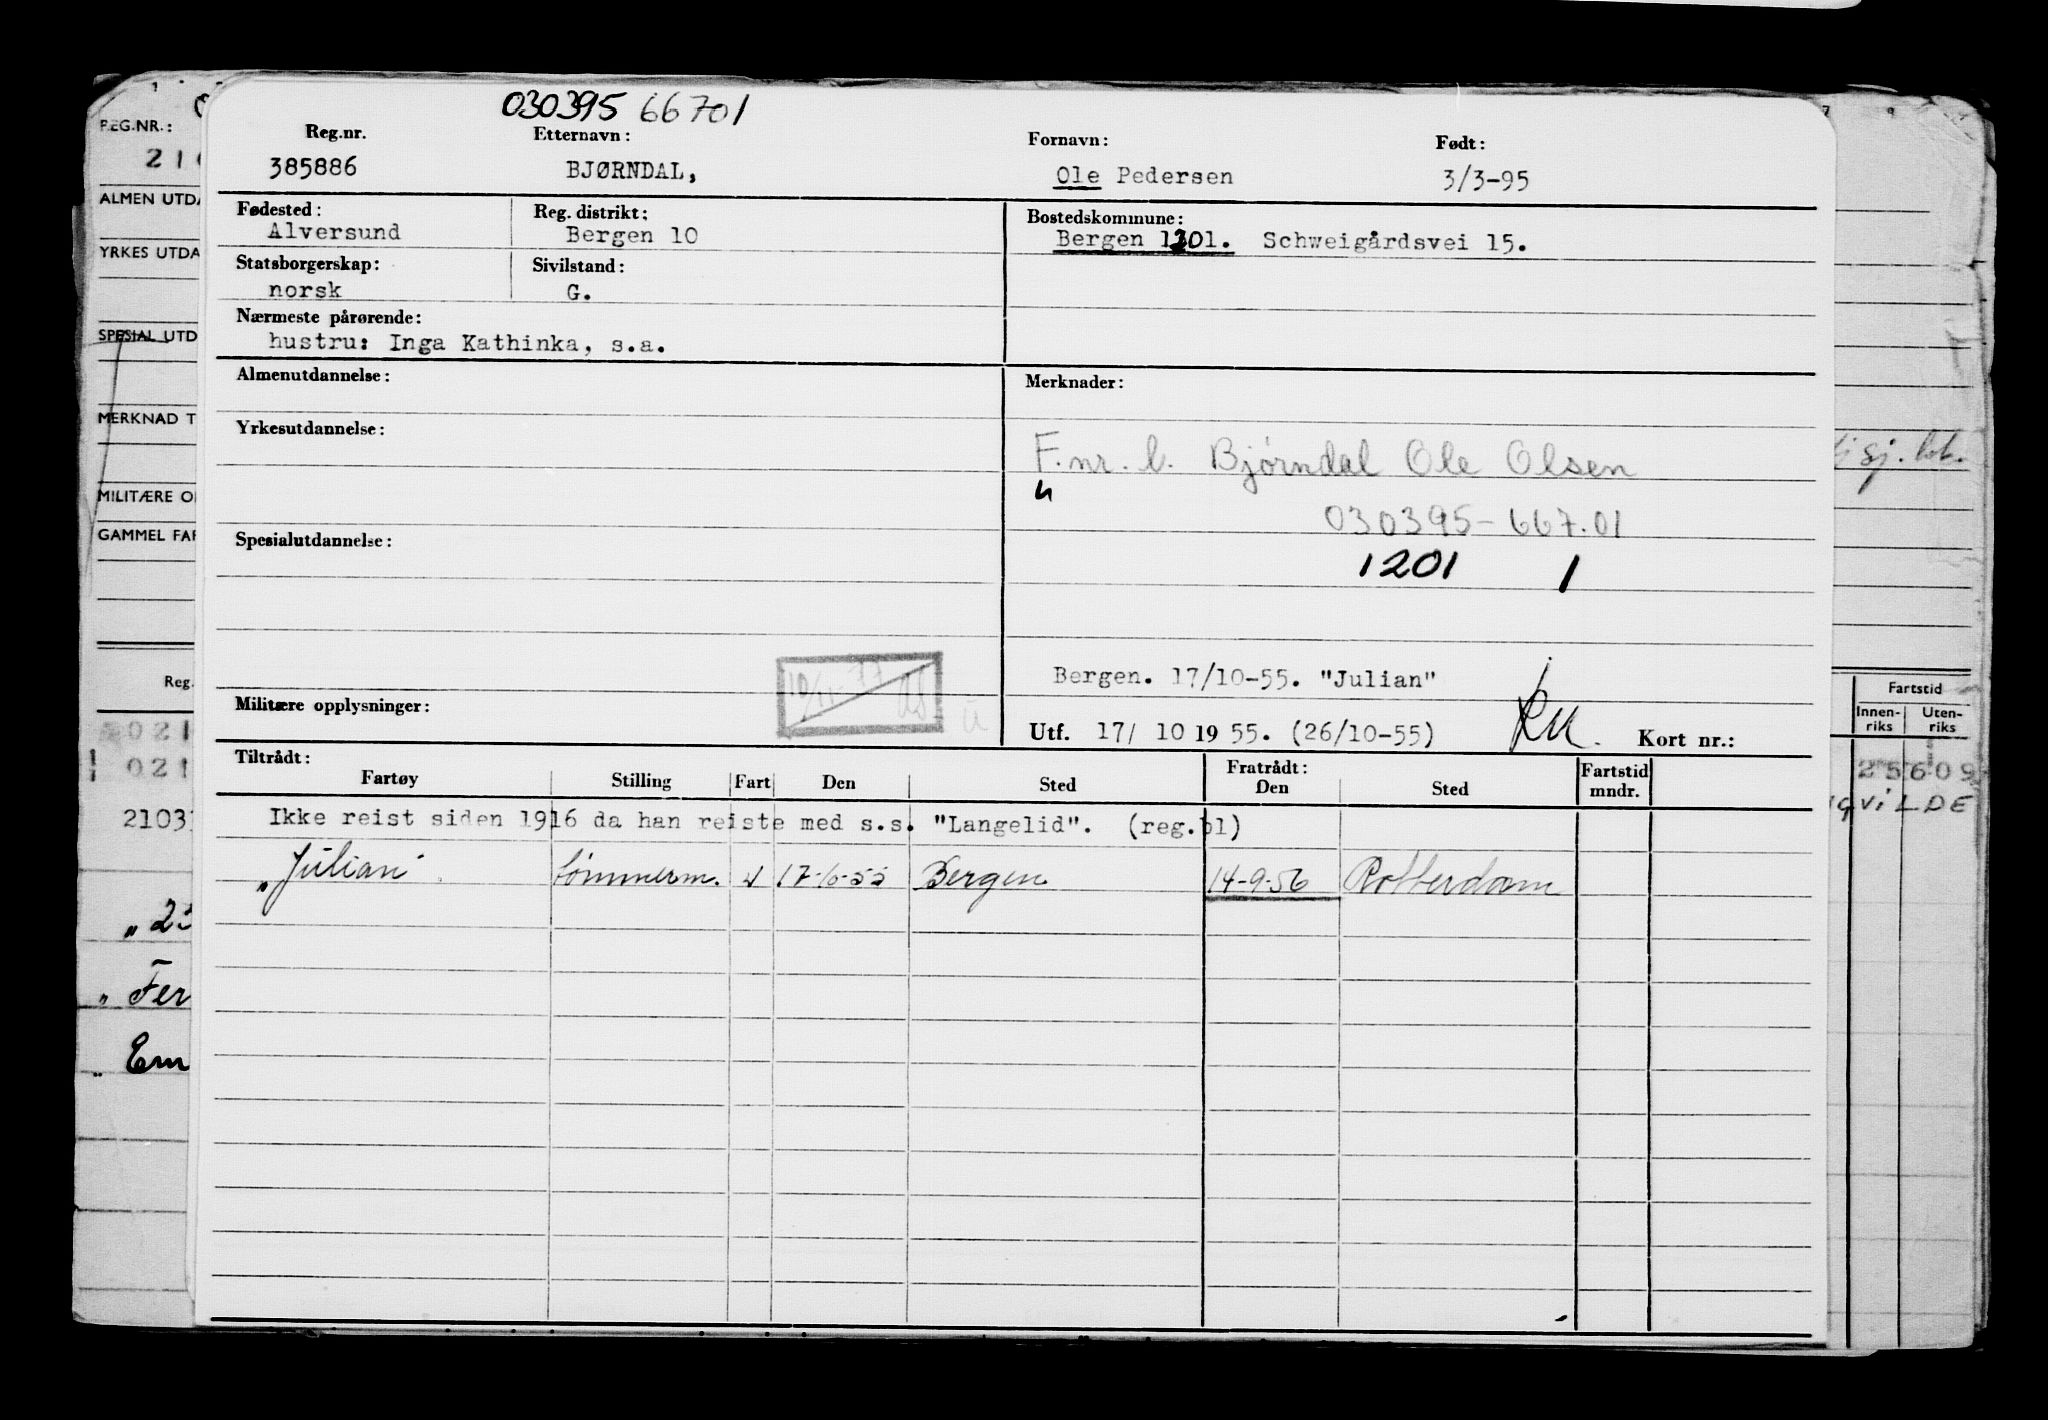 030395 66701
Reg.nr. Etternavn: Fornavn: Født:
385886 BJØRNDAL, Ole Pedersen 3/3-95
Fødested: Reg. distrikt: Bostedskommune:
Alversund Bergen 10 Bergen 1201. Schweigårdsvei 15.
Statsborgerskap: Sivilstand:
norsk G.
Nærmeste pårørende:
hustru: Inga Kathinka, s.a.
Almenutdannelse: Merknader:
Yrkesutdannelse:
F.nr. l. Bjørndal Ole Olsen
030395-667.01
Spesialutdannelse:
1201 1
Bergen. 17/10-55. "Julian"
Militære opplysninger:
Utf. 17/ 10 19 55. (26/10-55) Kort nr.:
Tiltrådt: Fratrådt:
Fartøy Stilling Fart Den Sted Den Sted Fartstid mndr.
Ikke reist siden 1916 da han reiste med s.s. "Langelid". (reg.bl)
"Julian" tømmerm. 17-10-55 Bergen 14-9-56 Rotterdam
REG.NR.:
ALMEN UTDA
YRKES UTDA
SPESIAL UTD
MERKNAD T
MILITÆRE O
GAMMEL FAR
Reg.
021
021
2103
" 23
" Fer
" Em
sj.
Fartstid
Innen-riks Uten-riks
25609
VILDE